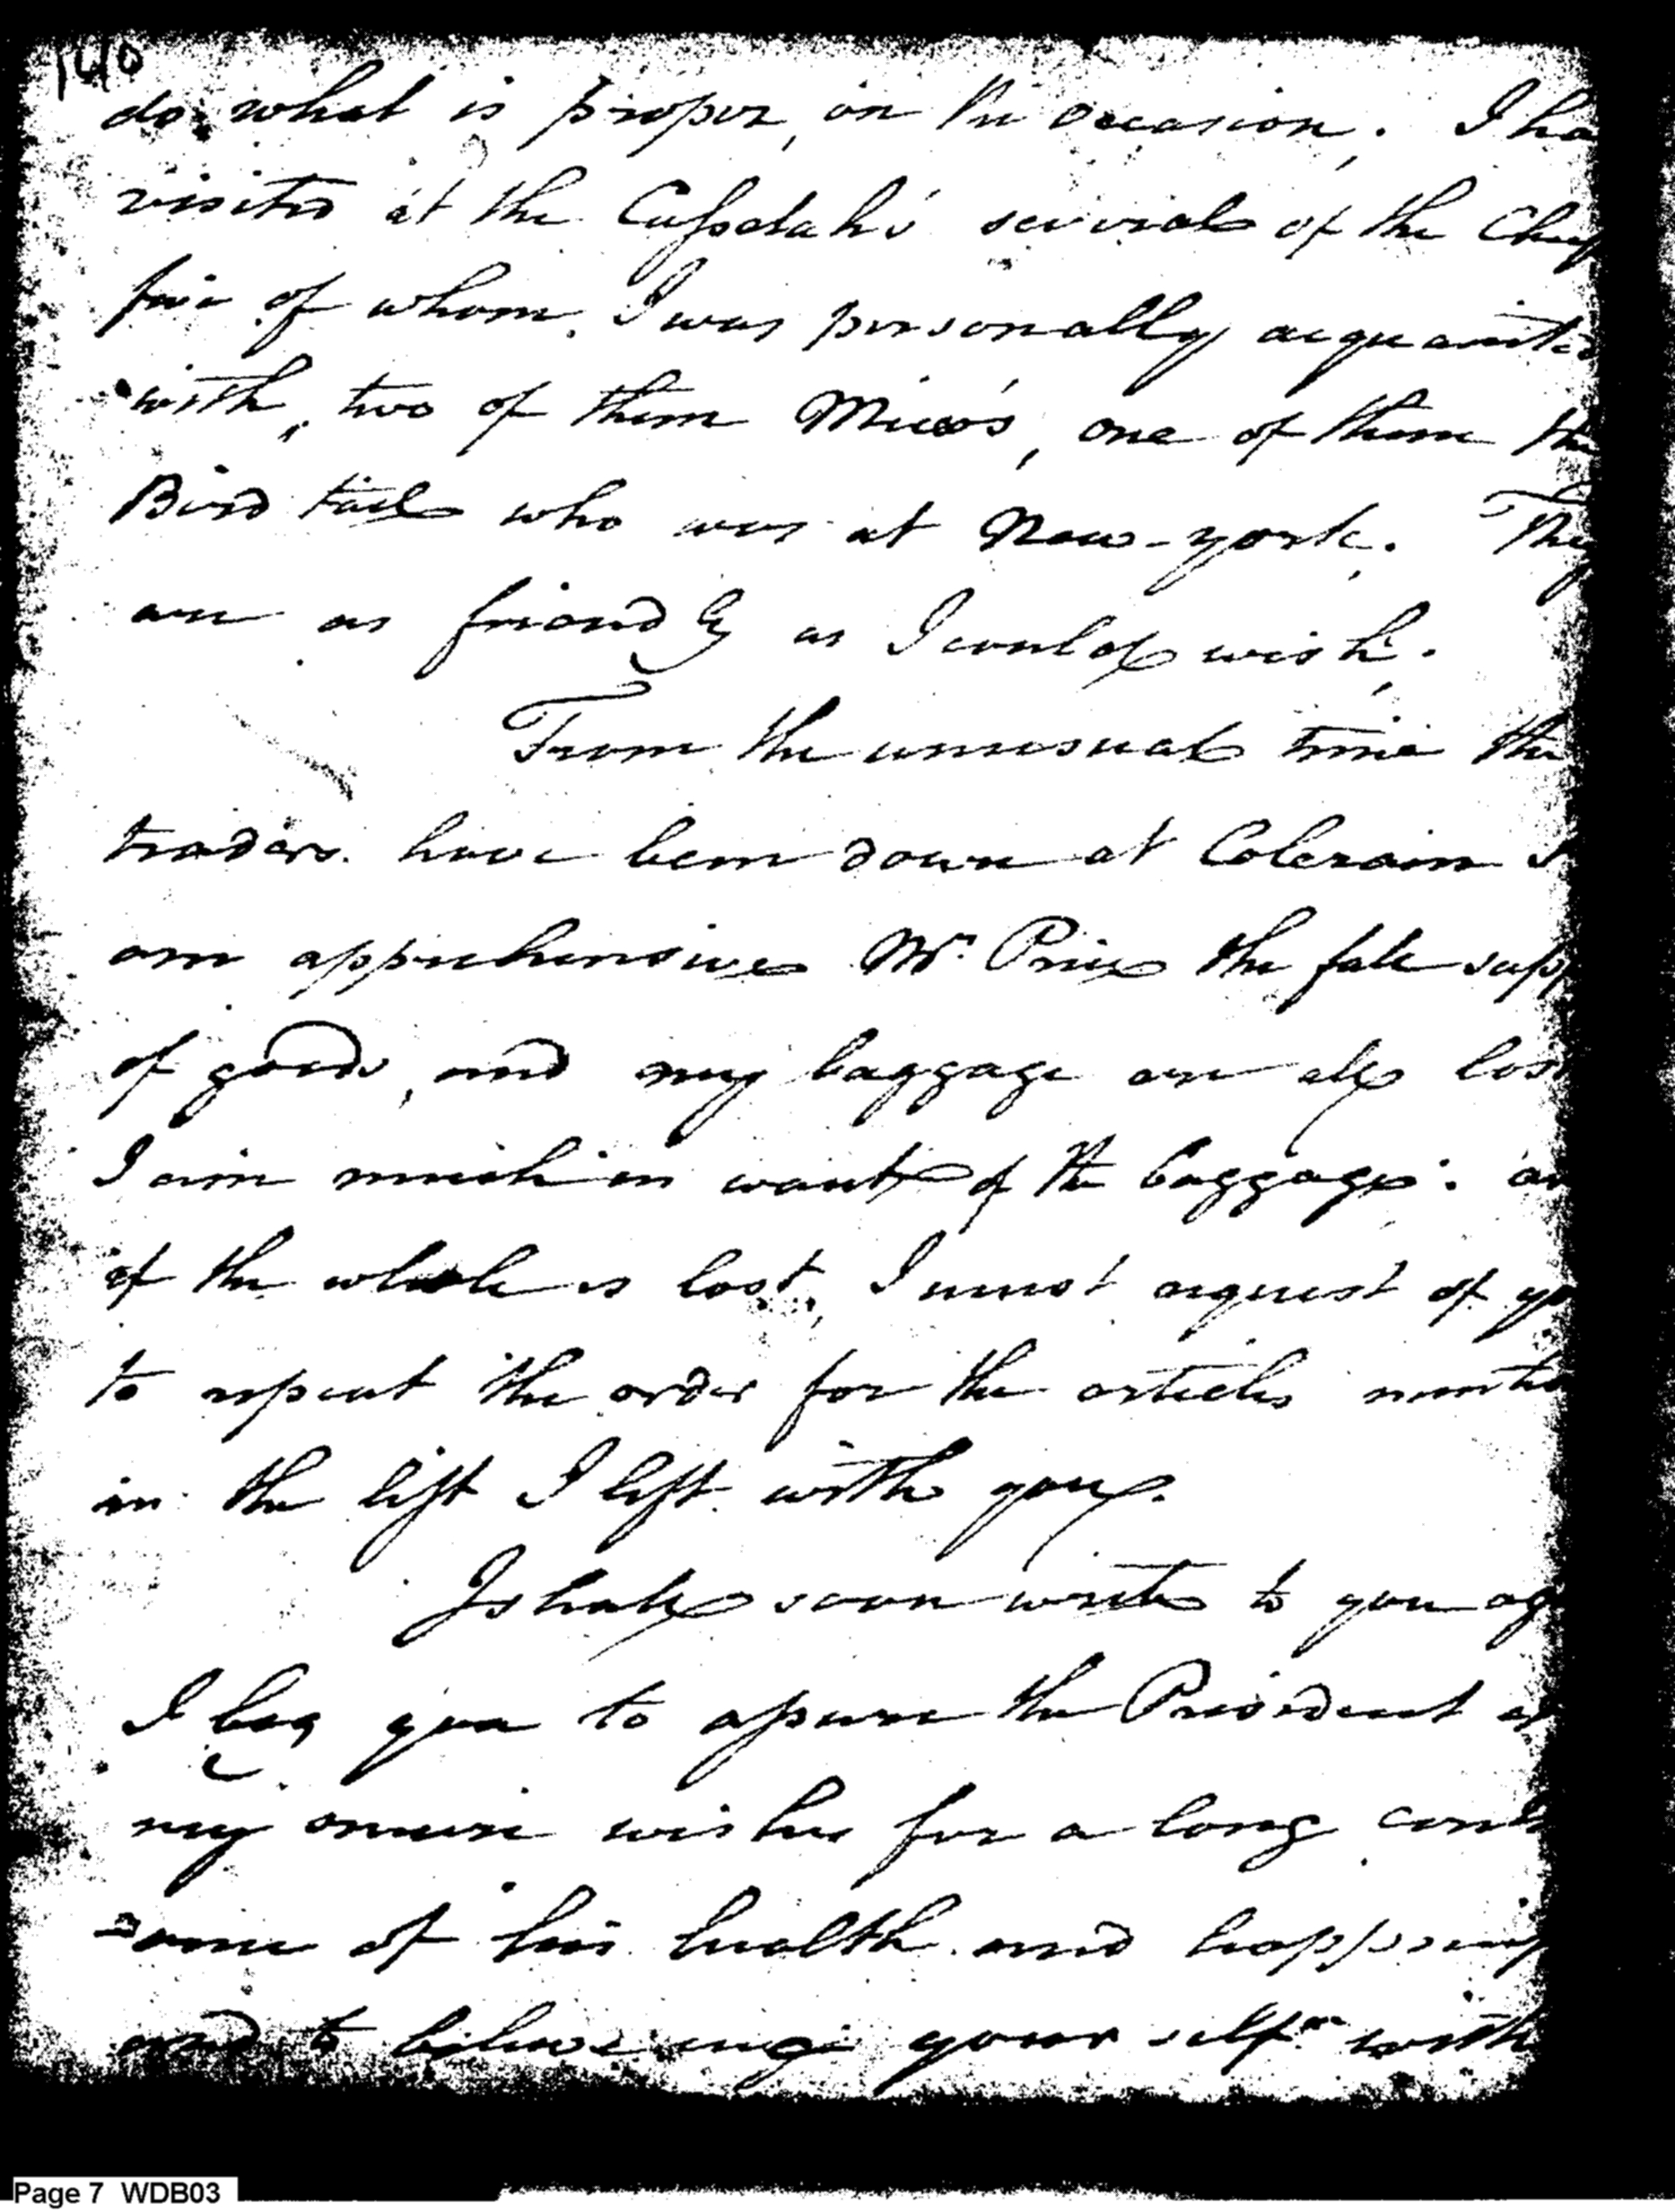 140
do what is proper, on the occasion. I ha
visited at the Cussetahs several of the Chief
five of whom I was personally acquainted
with, two of them Micco's, one of them the
Bird tail who was at New-york. They
are as friendly as I could wish.
From the unusual time the
traders have been down at Colerain I
am apprehensive Mr. Price the fall supp
of goods, and my baggage are all lost
I am much in want of the baggage: an
if the whole is lost, I must request of yo
to repeat the order for the articles mentio
in the list I left with you.
I shall soon write to you ag
I beg you to assure the President of
my sincere wishes for a long conti
=ance of his health and happiness
and to believe me yourself with
Page 7 WDB03